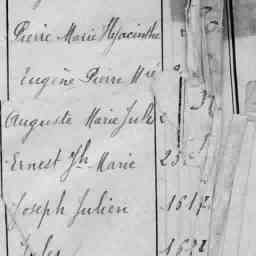 Pierre Marie Hyacinthe
Eugène Pierre Mié
Auguste Marie Jules
Ernest Jh Marie 25
Joseph Julien 1517
Jules